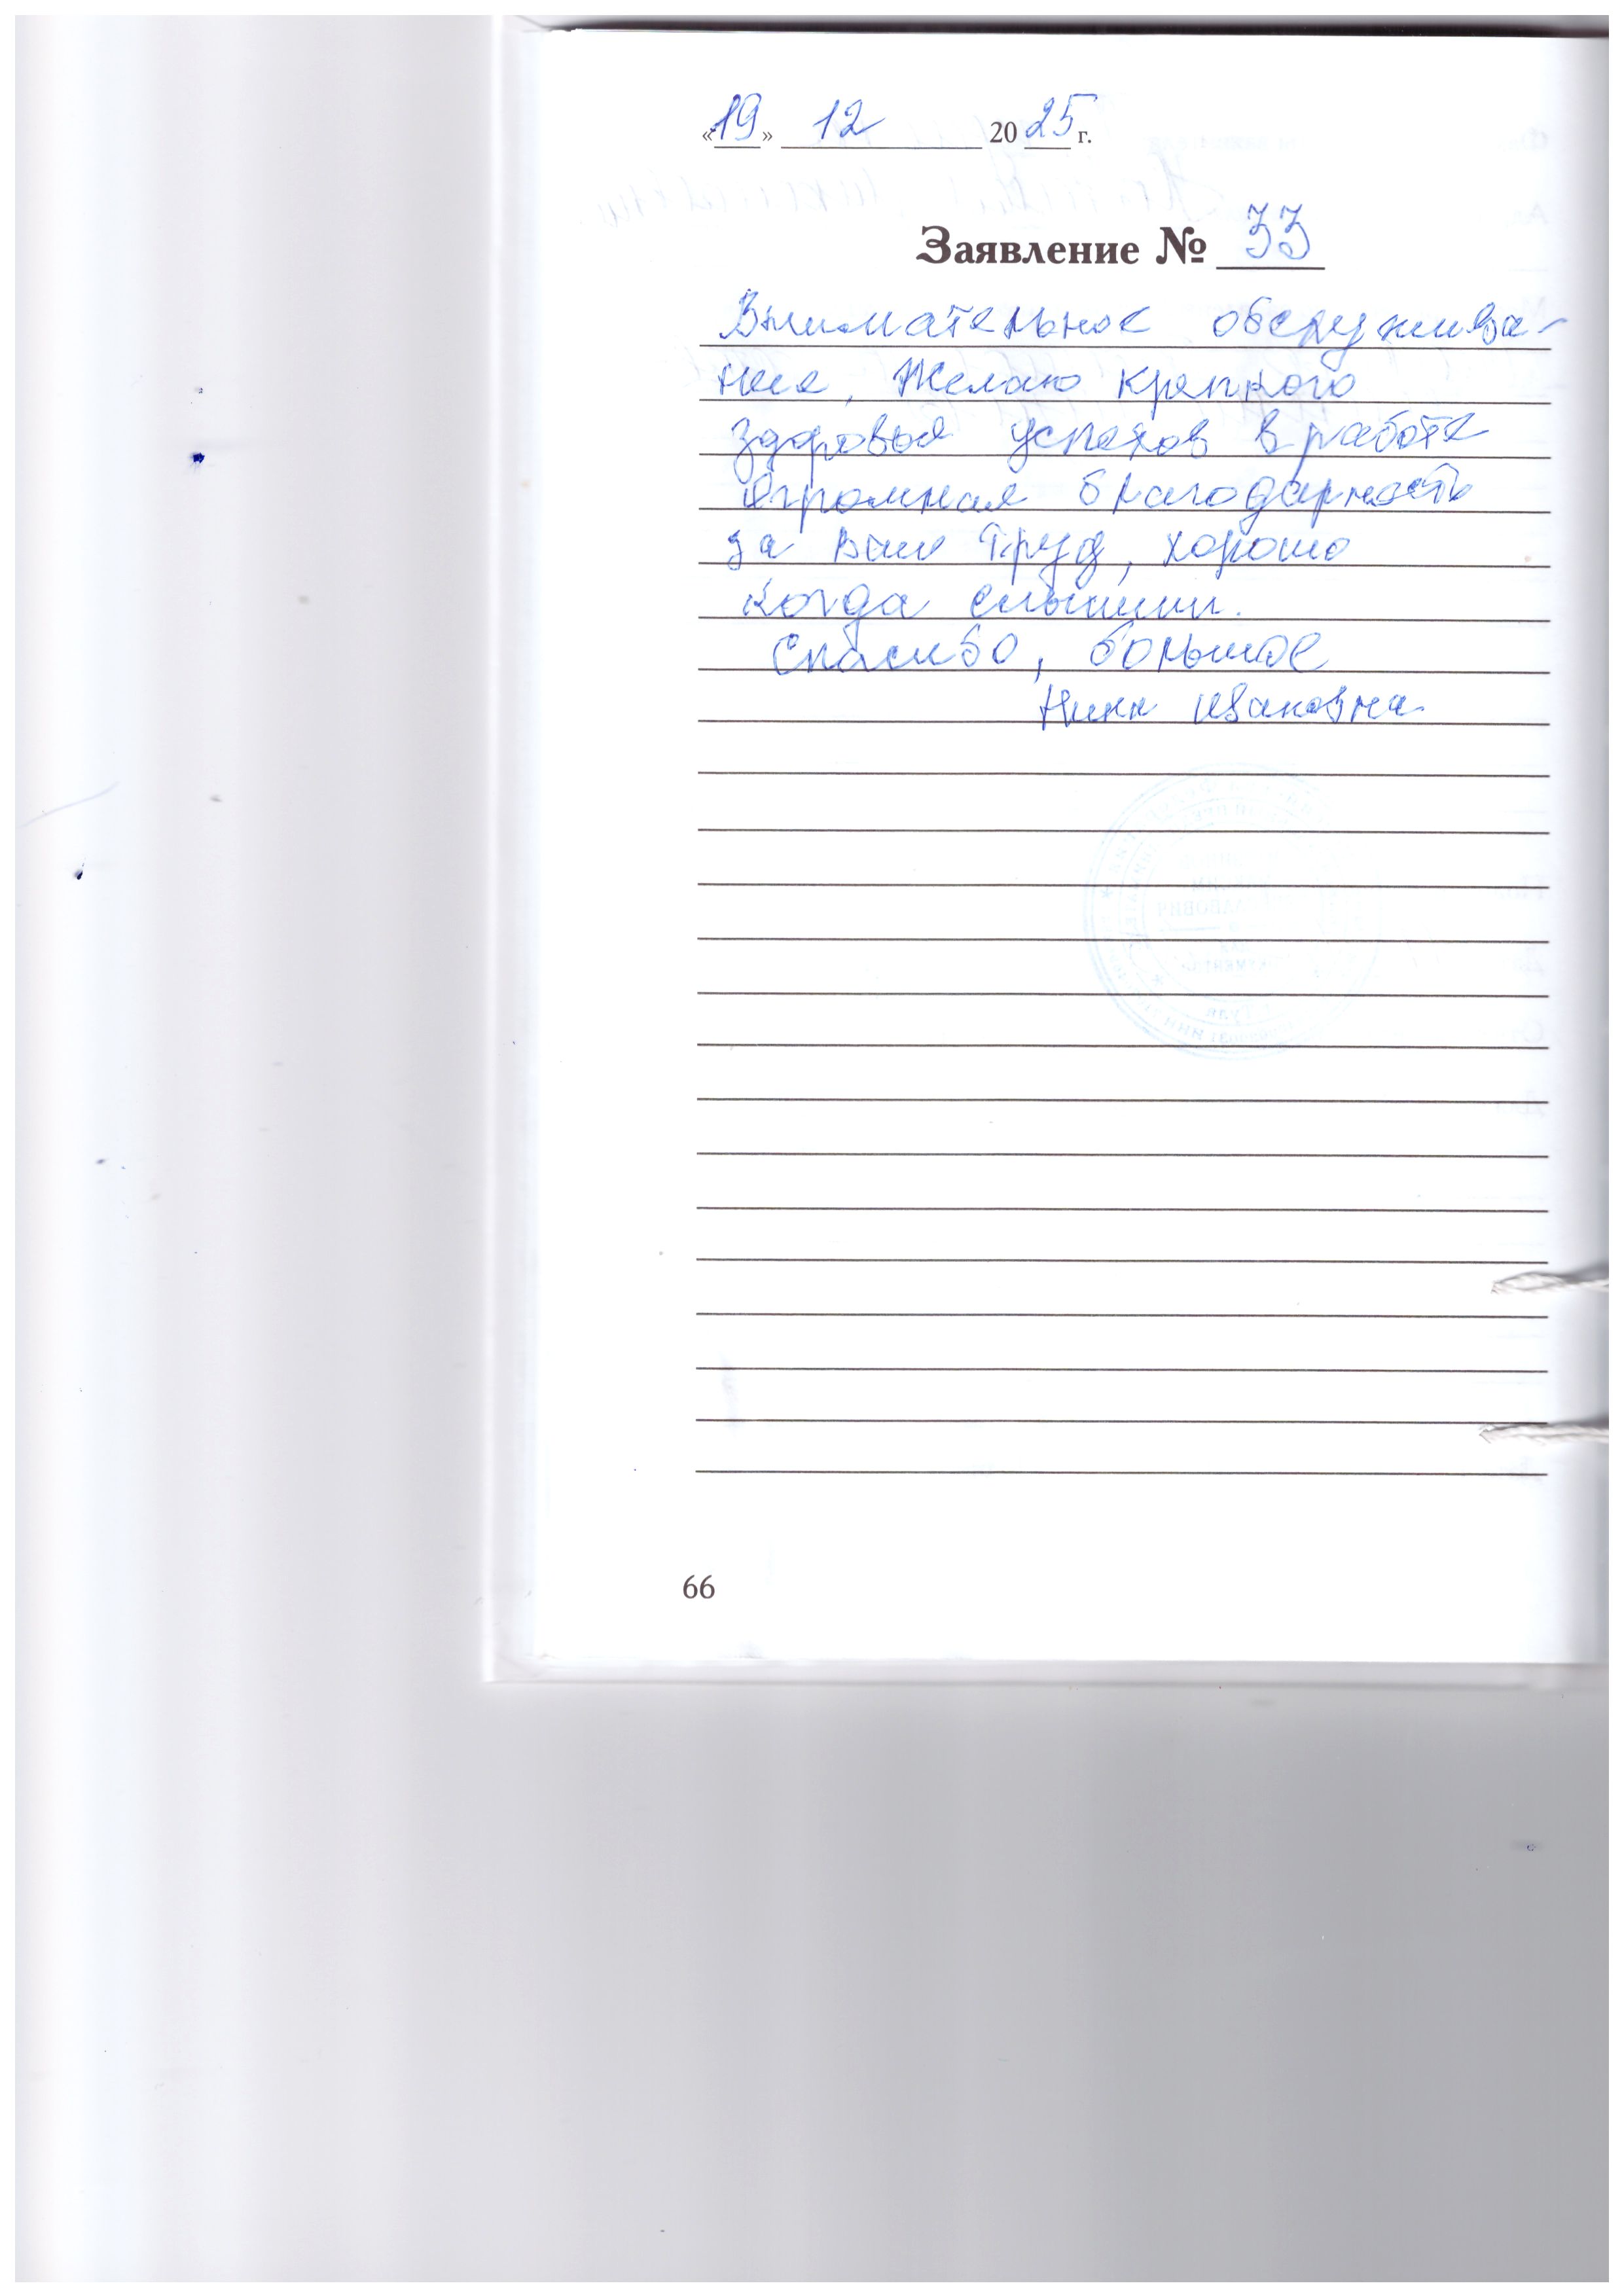 «19» 12 2025 г.
Заявление № 33
Внимательное обслужива-
ние, Желаю крепкого
здоровья успехов в работе
Огромная благодарность
за Ваш труд, хорошо
когда слышим.
Спасибо, большое
Нина Ивановна.
66